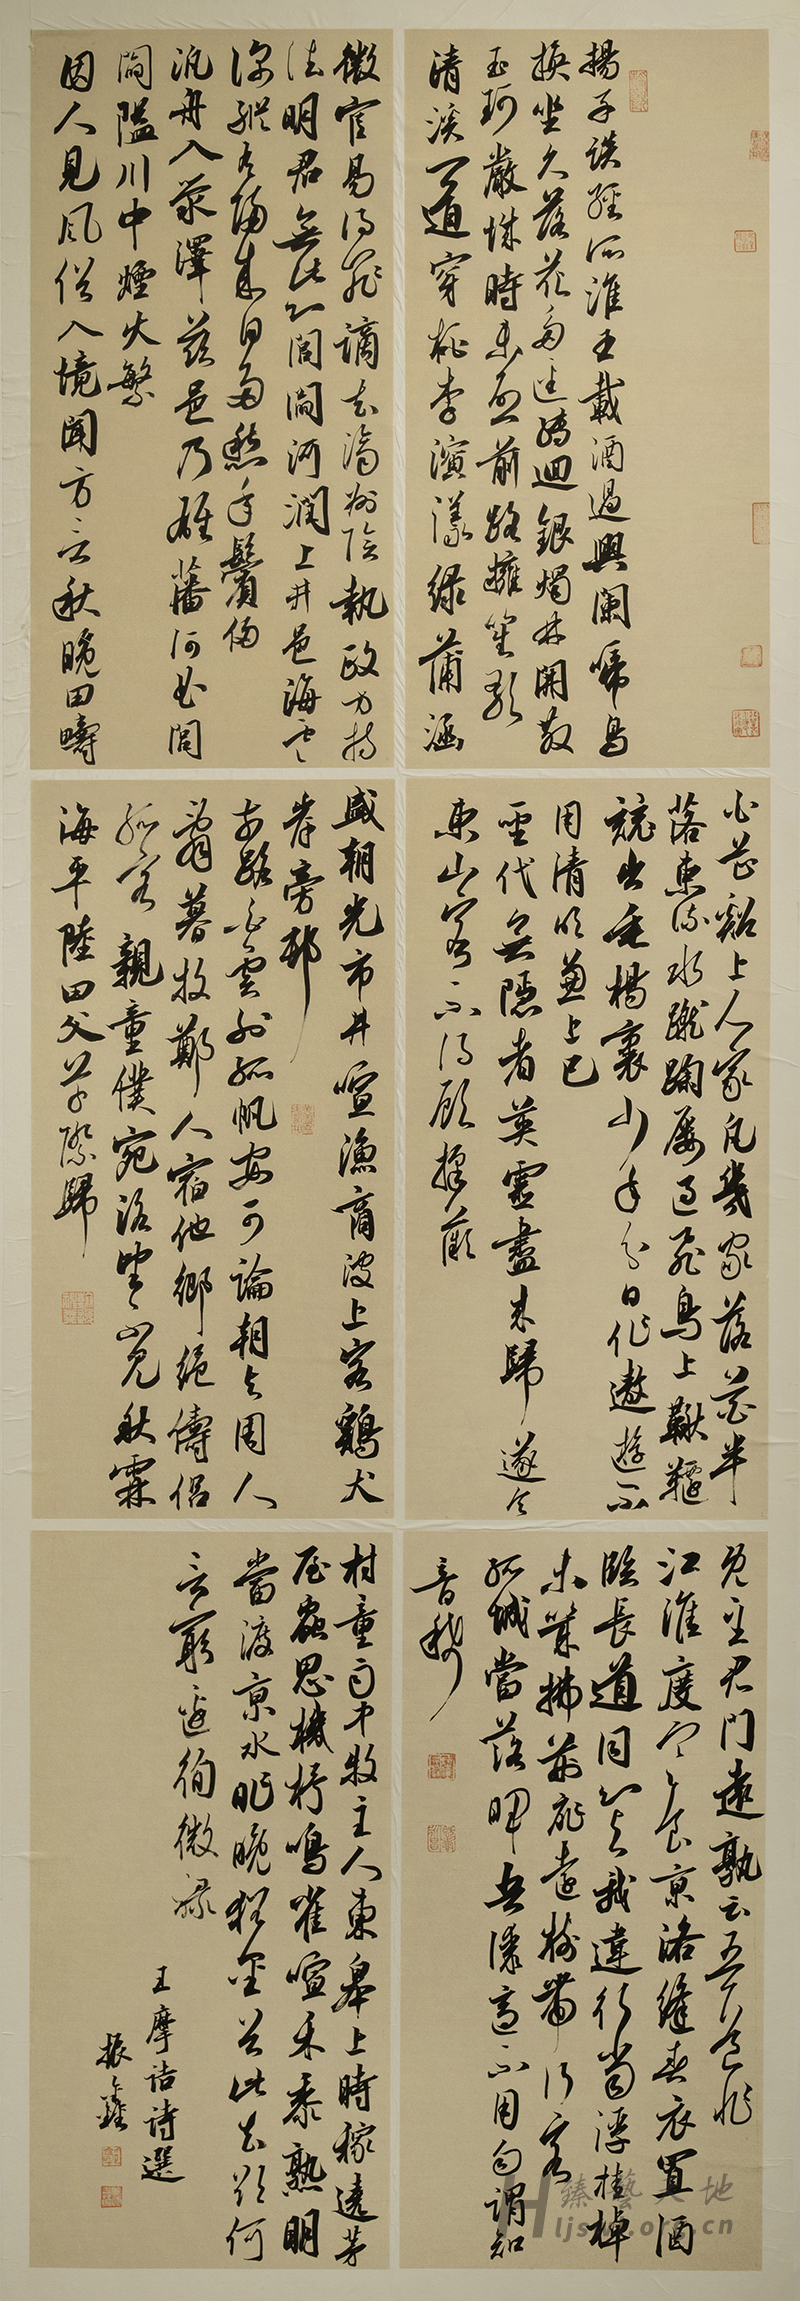 揚子談經所淮王載酒過興闌啼鳥
換坐久落花多逕轉迴銀燭林開散
玉珂嚴城時未啓前路擁笙歌
清溪一道穿桃李演漾綠蒲涵
白芷谿上人家凡幾家落花半
落東流水蹴踘屢過飛鳥上鞦韆
競出垂楊裏少年分日作遨遊不
用清明兼上巳
聖代無隱者英靈盡來歸遂令
東山客不得顧採薇
既至君門遠孰云吾道非
江淮度寒食京洛縫春衣置酒
臨長道同心與我違行當浮桂棹
未幾拂荊扉遠樹帶行客
孤城當落暉吾謀適不用勿謂知
音稀
微官易得罪謫去濟州陰執政方持
法明君無此心閭閻河潤上井邑海雲
深縱有歸來日多愁年鬢侵
汎舟入滎澤茲邑乃雄藩河曲閭
閻隘川中煙火繁
因人見風俗入境聞方言秋晚田疇
盛朝光市井喧漁商波上客鷄犬
岸旁邨
前路白雲外孤帆安可論朝與周人
辭暮投鄭人宿他鄉絕儔侶
孤客親童僕宛洛望不見秋霖
海平陸田父草際歸
村童雨中牧主人東皋上時稼遶茅
屋蟲思機杼鳴雀喧禾黍熟明
當渡京水昨晚猶金谷此去欲何
言窮邊徇微祿
王摩詰詩選
振鑫
臻藝天地